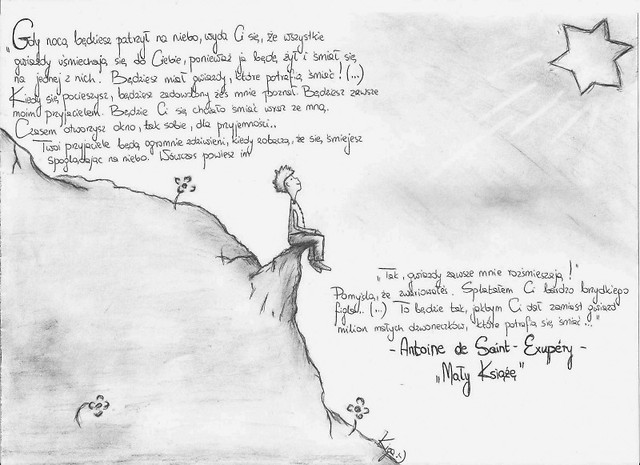 „Gdy nocą będziesz patrzył na niebo, wyda Ci się, że wszystkie
gwiazdy uśmiechają się do Ciebie, ponieważ ja będę żył i śmiał się
na jednej z nich. Będziesz miał gwiazdy, które potrafią śmiać! (...)
Kiedy się pocieszysz, będziesz zadowolony żeś mnie poznał. Będziesz zawsze
moim przyjacielem. Będzie Ci się chciało śmiać wraz ze mną.
Czasem otworzysz okno, tak sobie, dla przyjemności..
Twoi przyjaciele będą ogromnie zdziwieni, kiedy zobaczą, że się śmiejesz
spoglądając na niebo. Wówczas powiesz im
„Tak, gwiazdy zawsze mnie rozśmieszają!"
Pomyślą, że zwariowałeś. Spłatałem Ci bardzo brzydkiego
figla.. (...) To będzie tak, jakbym Ci dał zamiast gwiazd
milion małych dzwoneczków, które potrafią się śmiać..."
- Antoine de Saint-Exupéry -
„Mały Książę"